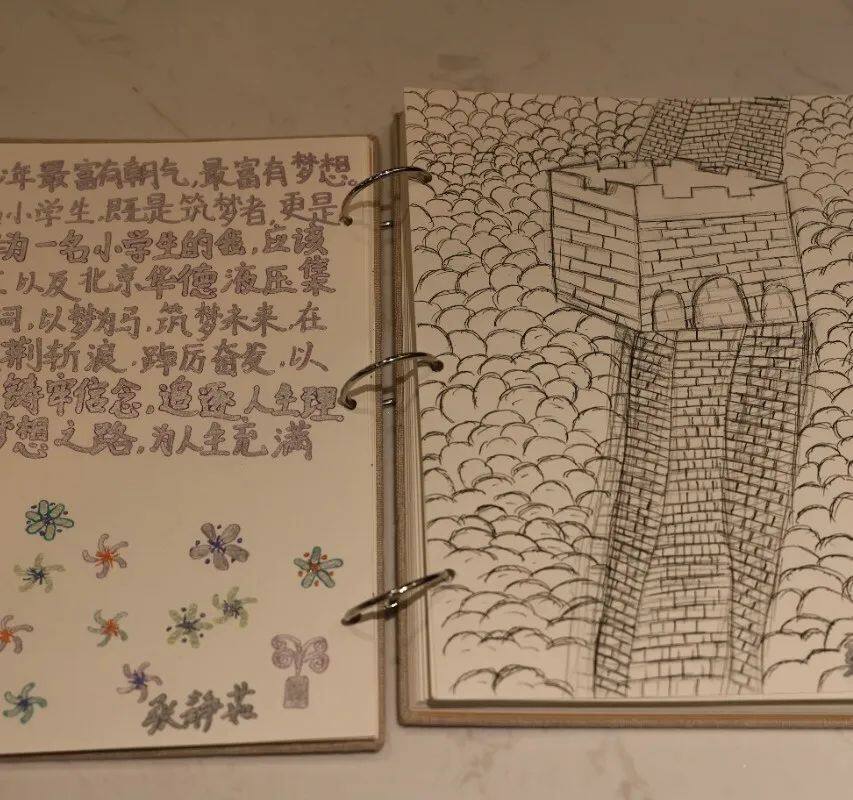 少年最富有朝气,最富有梦想。
小学生,既是筑梦者,更是
为一名小学生的我,应该
以及北京华德液压集
同,以梦为马,筑梦未来,在
荆斩浪,踔厉奋发,以
铸牢信念,追逐人生理
梦想之路,为人生充满
张静茹